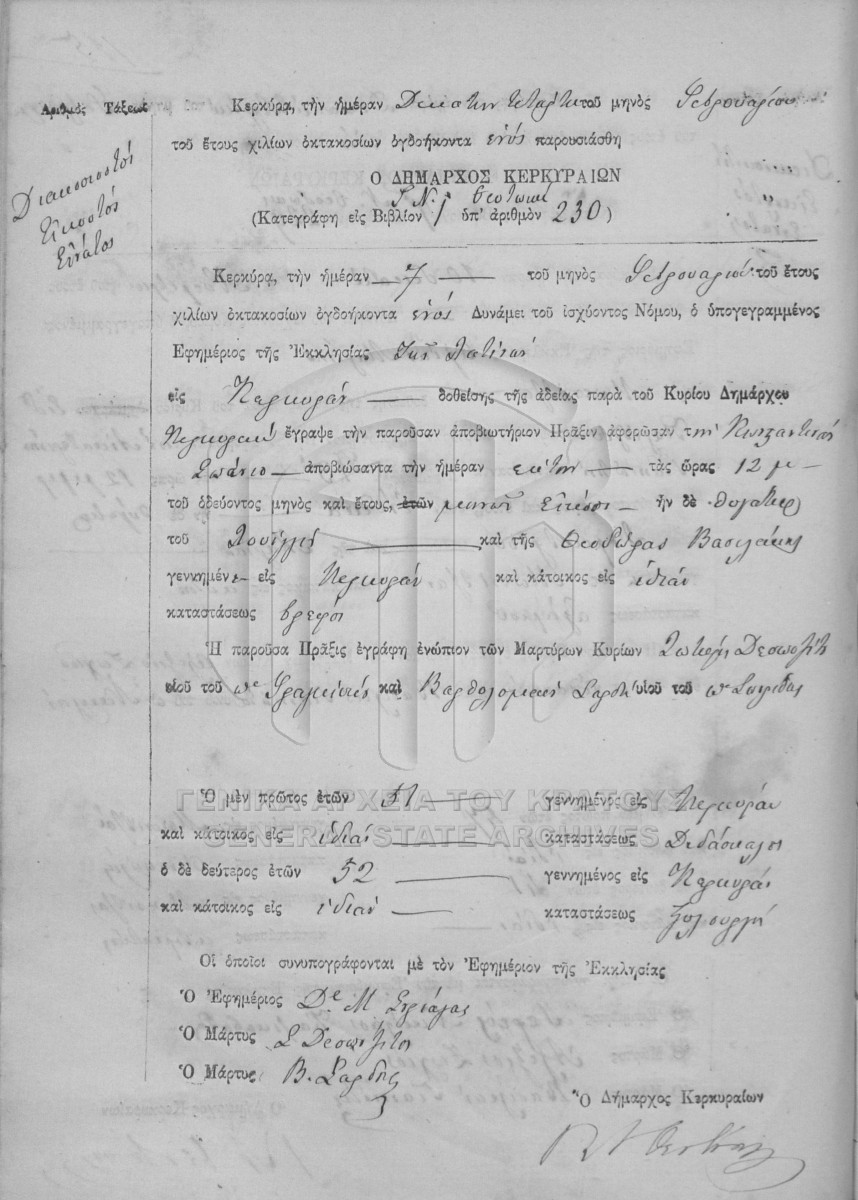 Ἀριθμὸς Τάξεως
Διακοσιοστός
Εἰκοστός
Ἐννάτος
Κερκύρα, τὴν ἡμέραν Δεκάτην τετάρτην τοῦ μηνὸς Φεβρουαρίου
τοῦ ἔτους χιλίων ὀκτακοσίων ὀγδοήκοντα ἑνός παρουσιάσθη
Ο ΔΗΜΑΡΧΟΣ ΚΕΡΚΥΡΑΙΩΝ
(Κατεγράφη εἰς Βιβλίον 1 ὑπ' ἀριθμὸν 230)
Κερκύρα, τὴν ἡμέραν 7 τοῦ μηνὸς Φεβρουαρίου τοῦ ἔτους
χιλίων ὀκτακοσίων ὀγδοήκοντα ἑνός Δυνάμει τοῦ ἰσχύοντος Νόμου, ὁ ὑπογεγραμμένος
Ἐφημέριος τῆς Ἐκκλησίας τῶν Λατίνων
εἰς Κερκυραν δοθείσης τῆς ἀδείας παρὰ τοῦ Κυρίου Δημάρχου
ἔγραψε τὴν παροῦσαν ἀποβιωτήριον Πρᾶξιν ἀφορῶσαν
ἀποβιώσαντα τὴν ἡμέραν ἕκτην τὰς ὥρας 12 μ
τοῦ ὁδεύοντος μηνὸς καὶ ἔτους, ἐτῶν μηνῶν εἴκοσι ἦν δὲ θυγάτηρ
τοῦ Λουΐγγη καὶ τῆς Θεοδώρας Βασιλάκη
γεννημένη εἰς Κερκυραν καὶ κάτοικος εἰς ἰδίαν
καταστάσεως βρεφος
Ἡ παροῦσα Πρᾶξις ἐγράφη ἐνώπιον τῶν Μαρτύρων Κυρίων Σωτηρη
υἱοῦ τοῦ καὶ Βαρθολομαίου Σαρδη υἱοῦ τοῦ
Ὁ μὲν πρῶτος ἐτῶν 51 γεννημένος εἰς Κερκυραν
ΓΕΝΙΚΑ ΑΡΧΕΙΑ ΤΟΥ ΚΡΑΤΟΥΣ
καὶ κάτοικος εἰς ἰδίαν καταστάσεως Διδάσκαλος
GENERAL STATE ARCHIVES
ὁ δὲ δεύτερος ἐτῶν 52 γεννημένος εἰς Κερκυραν
καὶ κάτοικος εἰς ἰδίαν καταστάσεως ξυλουργος
Οἱ ὁποῖοι συνυπογράφονται μὲ τὸν Ἐφημέριον τῆς Ἐκκλησίας
Ὁ Ἐφημέριος Δε Μ
Ὁ Μάρτυς Σ
Ὁ Μάρτυς Β. Σαρδης
Ὁ Δήμαρχος Κερκυραίων